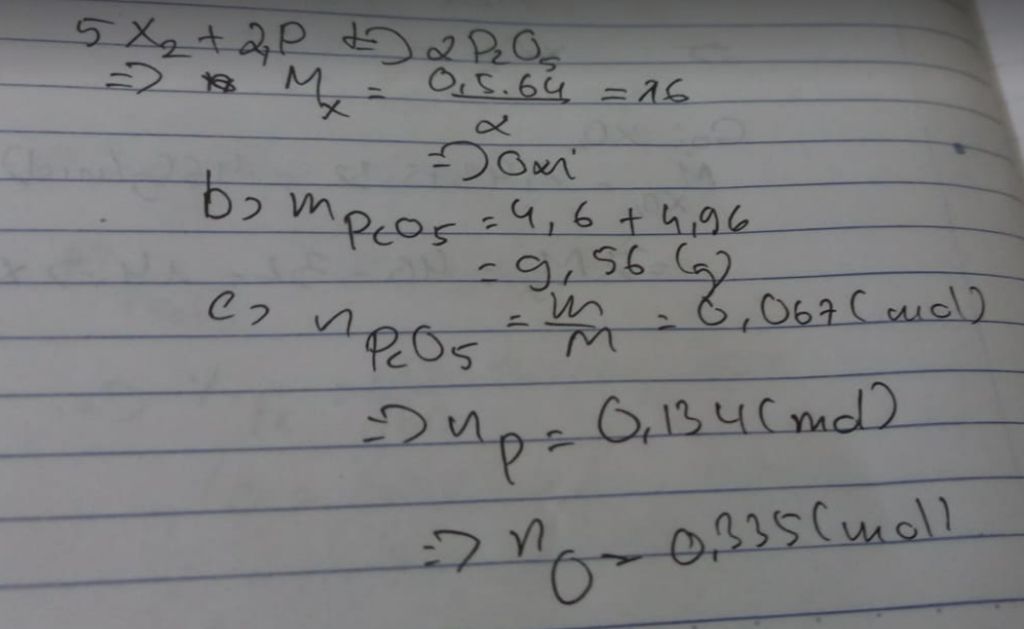 5X₂ + 2P ⇔ 2P₂O₅
=> Mₓ = 0,5.64 / 2 = 16
=> Oxi
b) m P₂O₅ = 4,6 + 4,96
= 9,56 (g)
c) n P₂O₅ = m/M = 0,067 (mol)
=> n P = 0,134 (mol)
=> n O = 0,335 (mol)